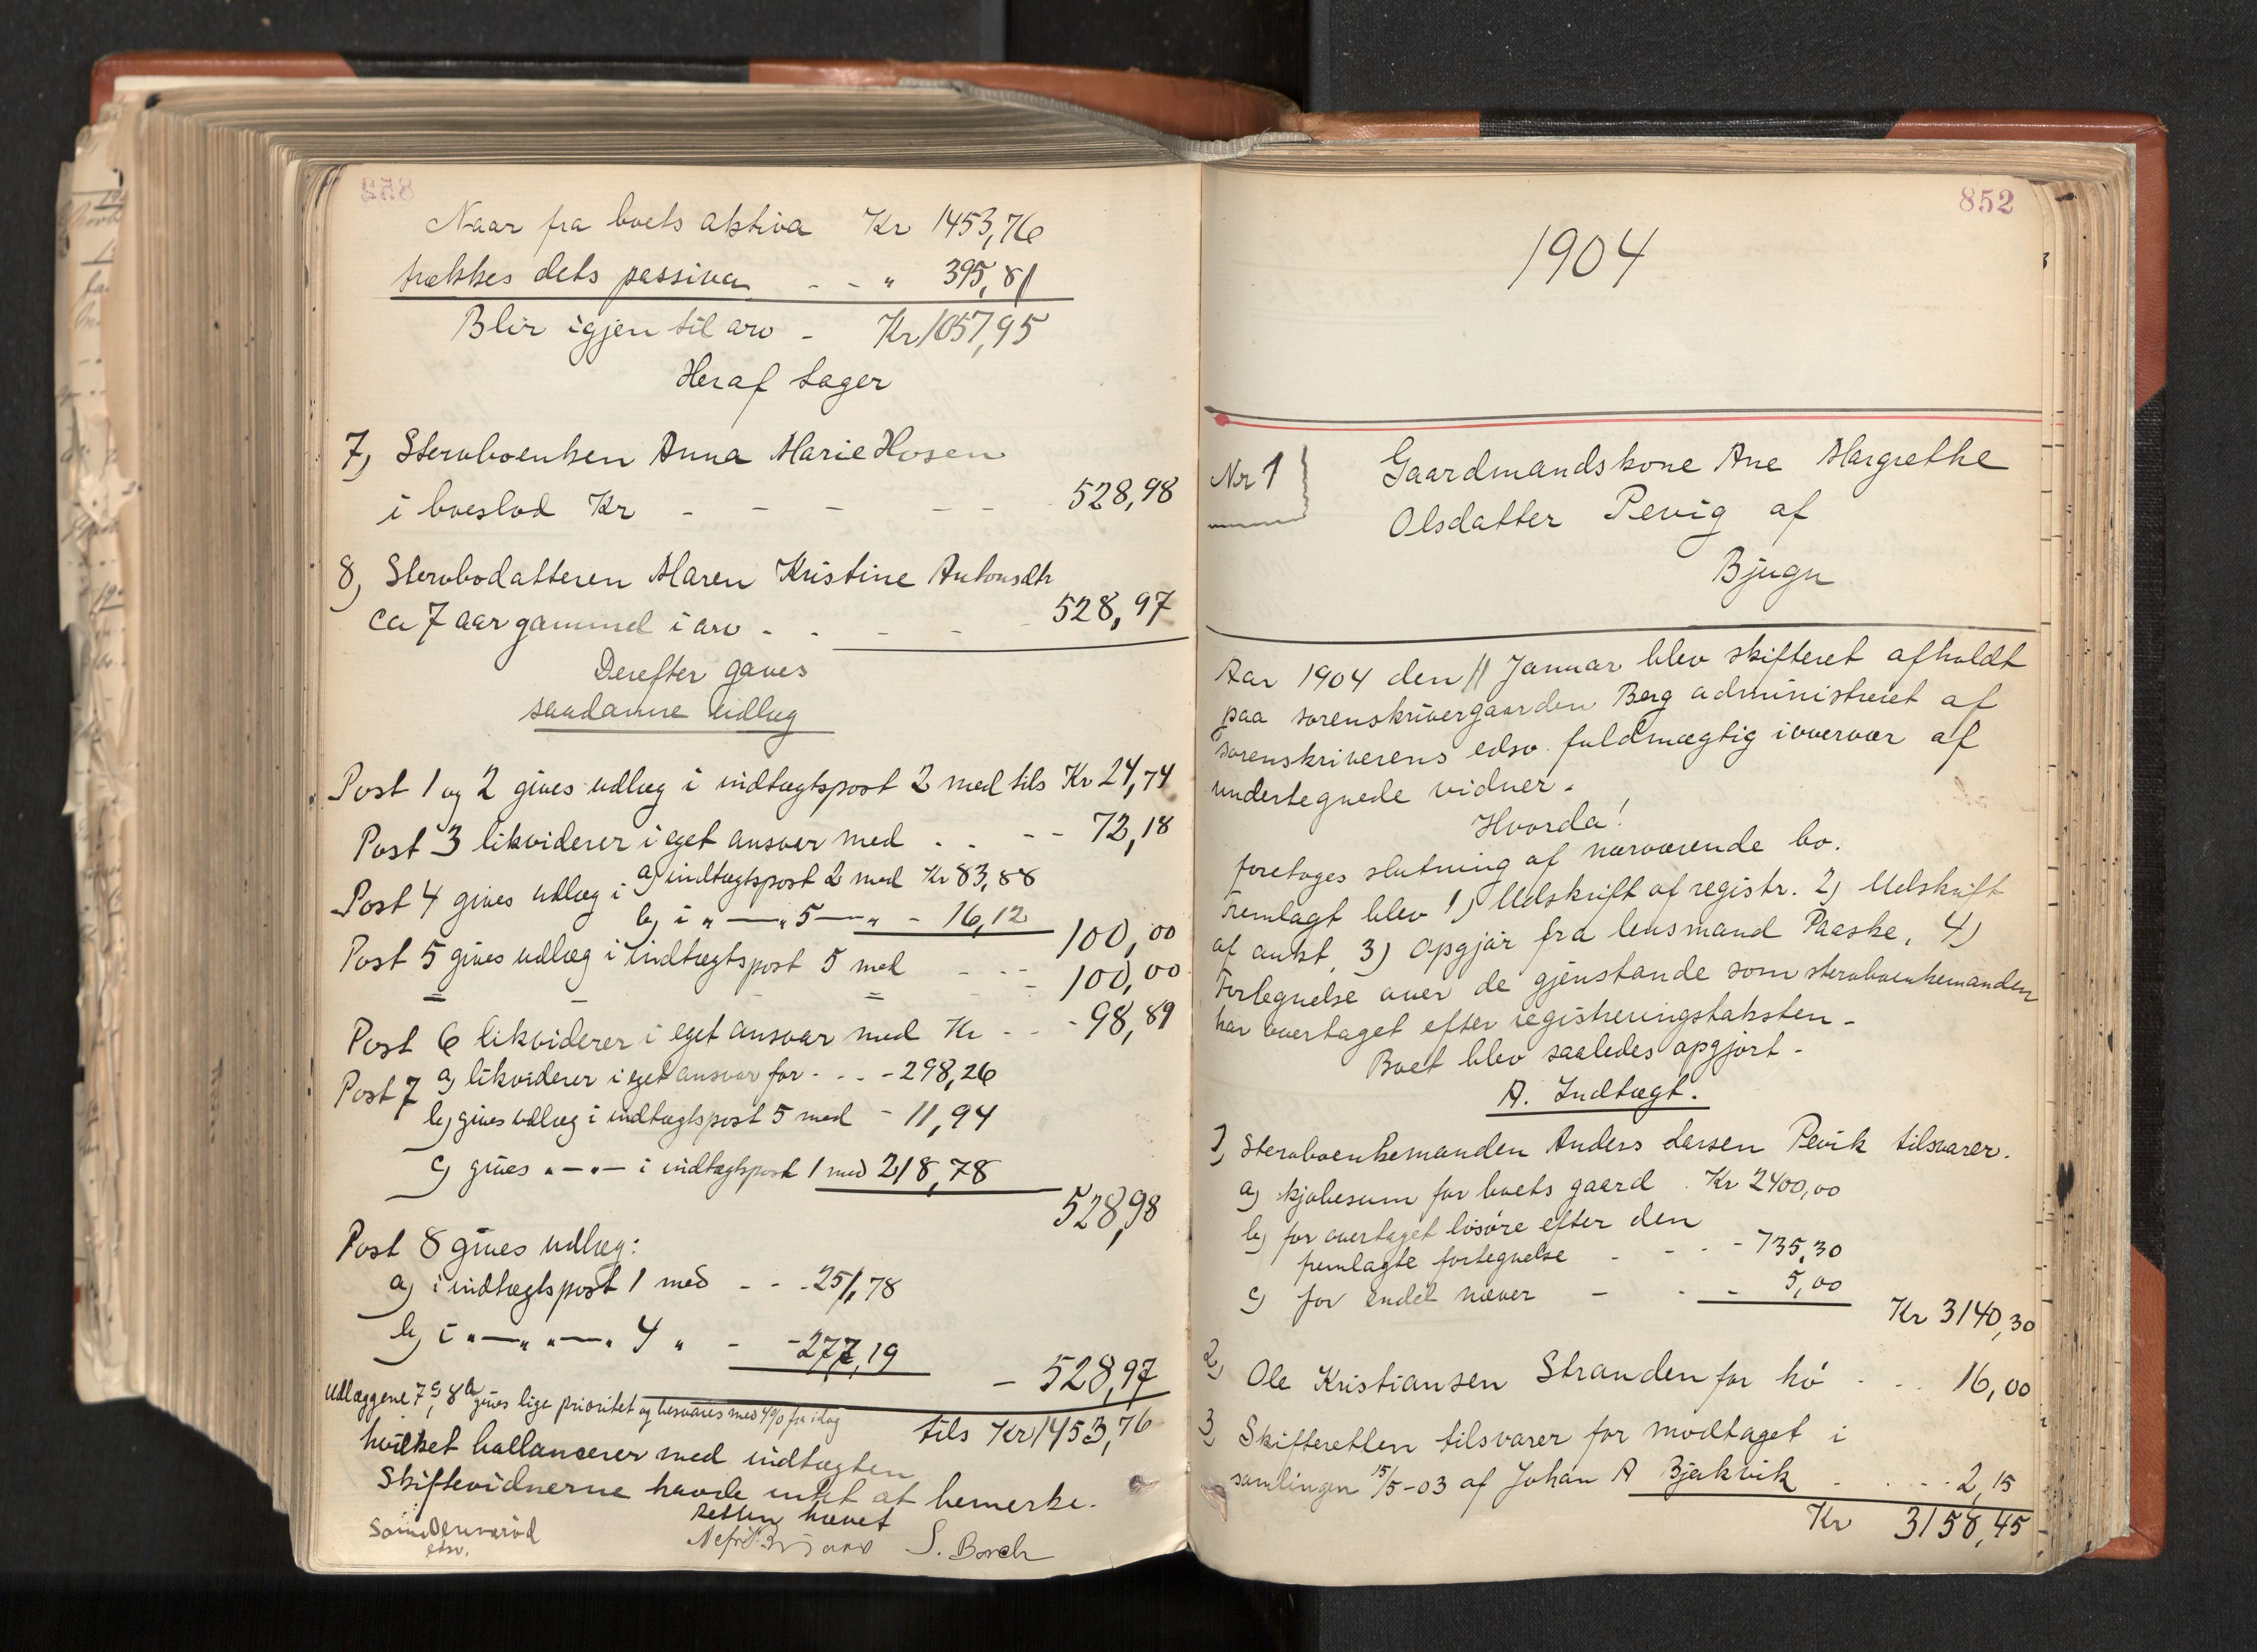 Naar fra boets aktiva Kr 1453,76
trækkes dets passiva - - " 395,81
Blir igjen til arv - Kr 1057,95
Heraf tager
7) Stervboenken Anna Marie Hosen
i boeslod Kr - - - - - 528,98
8) Stervbodatteren Maren Kristine Antonsdtr
ca 7 aar gammel i arv - - - - 528,97
Derefter gaves
saadanne udlæg
Post 1 og 2 gives udlæg i indtægtspost 2 med tils Kr 24,74
Post 3 likviderer i eget ansvar med . . - - 72,18
Post 4 gives udlæg i a) indtægtspost 2 med Kr 83,88
b) i " — " 5 — " - 16,12
100,00
Post 5 gives udlæg i indtægtspost 5 med - - - 100,00
Post 6 likviderer i eget ansvar med Kr - - - 98,89
Post 7 a) likviderer i eget ansvar for - . . - 298,26
b) gives udlæg i indtægtspost 5 med - 11,94
c) gives " — " — i indtægtspost 1 med 218,78
528,98
Post 8 gives udlæg:
a) i indtægtspost 1 med - - - 251,78
b) i " — " " — " 4 " - - 277,19
- 528,97
Udlæggene 7c, 8a gives lige prioritet og besvares med 4% fra idag
tils Kr 1453,76
hvilket ballancerer med indtægten
Skiftevidnerne havde intet at bemerke.
Retten hævet
edsv.
S. Borch
852
1904
Nr 1
Gaardmandskone Ane Margrethe
Olsdatter Pevig af
Bjugn
Aar 1904 den 11 Januar blev skifteret afholdt
paa sorenskrivergaarden Berg administreret af
sorenskriverens edsv. fuldmægtig i overvær af
undertegnede vidner.
Hvorda!
foretoges slutning af nærværende bo.
Fremlagt blev 1) Udskrift af registr. 2) Udskrift
af aukt, 3) Opgjør fra lensmand Paaske, 4)
Fortegnelse over de gjenstande som stervboenkemanden
har overtaget efter registreringstaksten -
Boet blev saaledes opgjort -
A. Indtægt.
1) Stervboenkemanden Anders Larsen Pevik tilsvarer.
a) kjøbesum for boets gaard . Kr 2400,00
b) for overtaget løsøre efter den
fremlagte fortegnelse - - . - 735,30
c) for endel næver - . - 5,00
Kr 3140,30
2) Ole Kristiansen Stranden for hø - . . 16,00
3) Skifteretten tilsvarer for modtaget i
samlingen 15/5-03 af Johan A Bjekvik . . . - - 2,15
Kr 3158,45